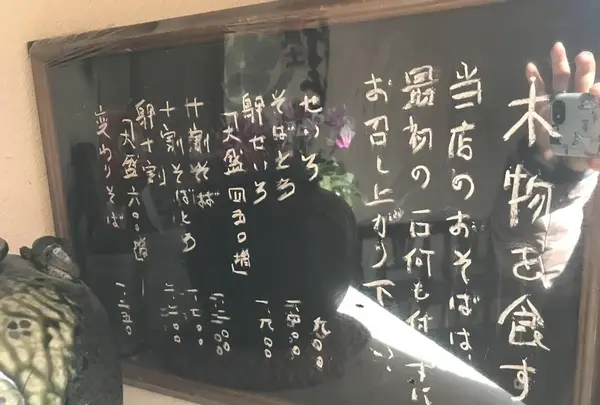 本物を食す
当店のおそばは、
最初の一口何も付けずに
お召し上がり下さい
せいろ 九〇〇
そばとろ 一.四〇〇
卵せいろ 一.六〇〇
(大盛 四五〇増)
十割そば
十割そばとろ 一.七〇〇
卵十割
(大盛 六〇〇増)
変わりそば 一.二五〇